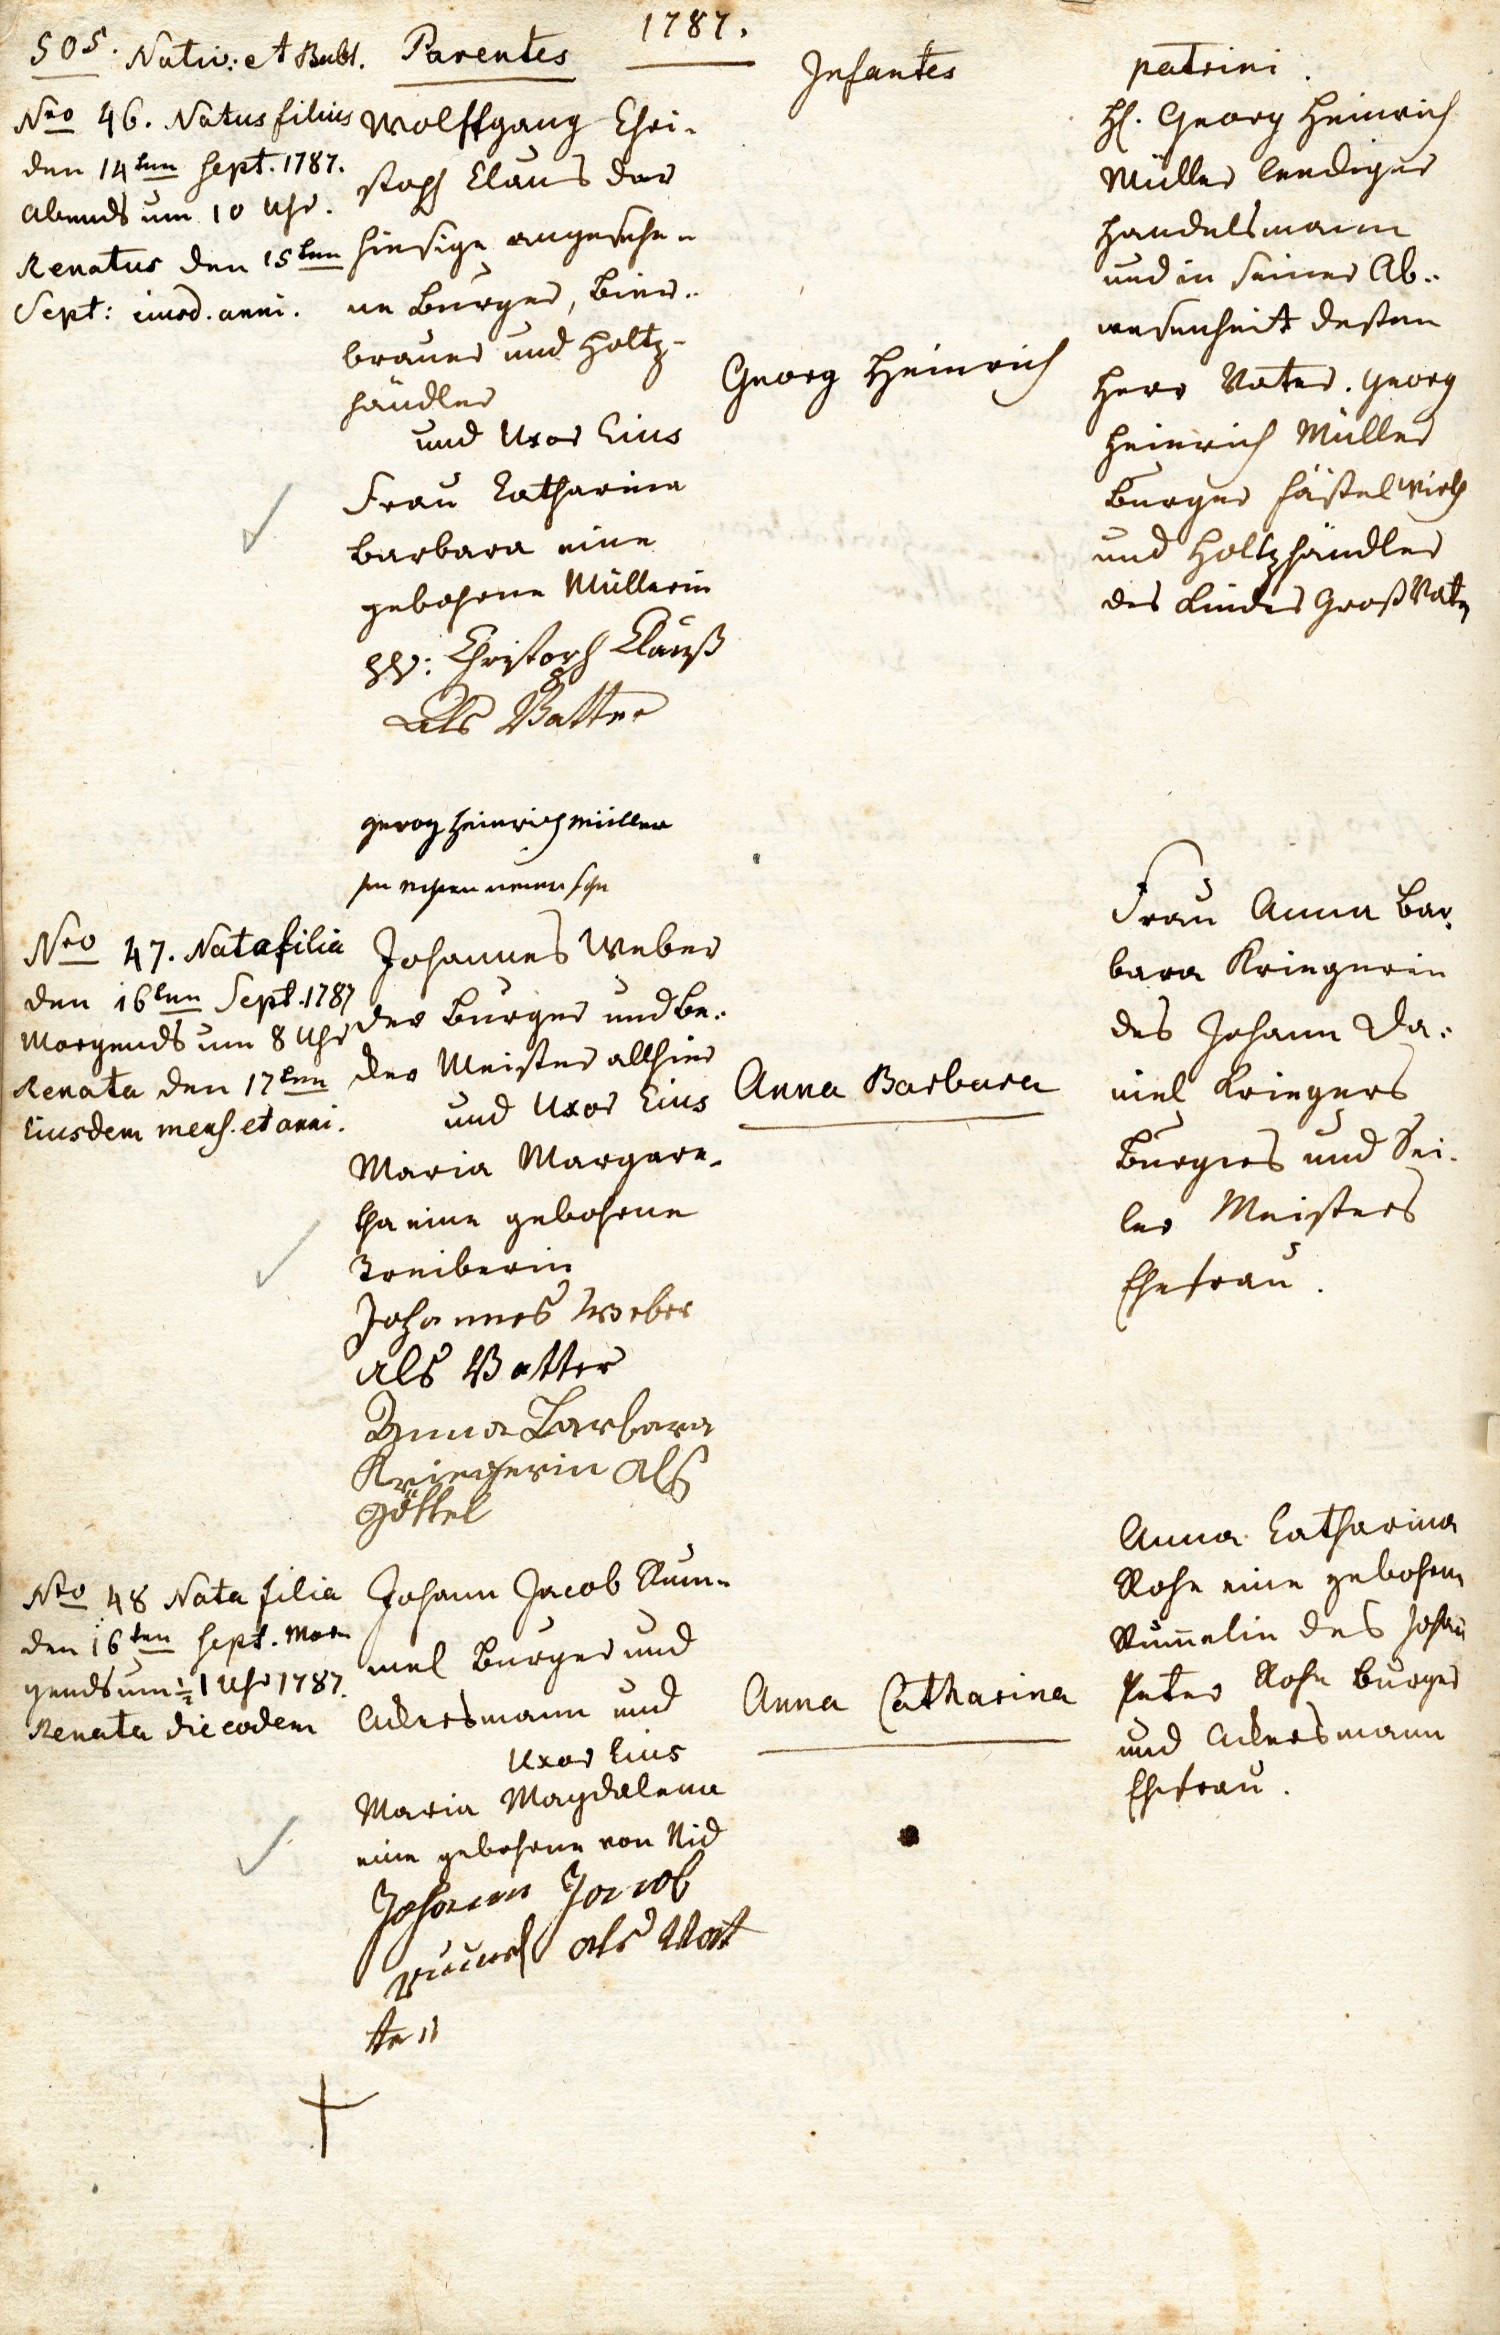 505. Nativ: et Bubt.
Parentes
1787.
Infantes
patrini.
Nro 46. Natus filius
den 14ten Sept. 1787.
Abends um 10 Uhr.
Renatus den 15ten
Sept: eiusd. anni.
Wolffgang Chri-
stoph Claus der
hiesige angesehe-
ne Burger, Bier-
brauer und Holtz-
händler
und Uxor Eius
Frau Catharina
Barbara eine
gebohrne Müllerin
Christoph Clauß
Als Vatter
georg heinrich müller
Georg Heinrich
H. Georg Heinrich
Müller leediger
Handelsmann
und in seiner Ab-
wesenheit dessen
Herr Vater. Georg
Heinrich Müller
Burger
und Holtzhändler
des Kindes Groß Vater
Nro 47. Nata filia
den 16ten Sept. 1787
Morgends um 8 Uhr
Renata den 17ten
Eiusdem mens. et anni.
Johannes Weber
der Burger und Be-
der Meister allhier
und Uxor Eius
Maria Margare-
tha eine gebohrne
Treiberin
Johannes Weber
als Vatter
Anna Barbara
Kriegerin als
göttel
Anna Barbara
Frau Anna Bar-
bara Kriegerin
des Johann Da-
niel Kriegers
Burgers und Sei-
ler Meisters
Ehefrau.
Nro 48 Nata filia
den 16ten Sept. Mor-
gends um ½ 1 Uhr 1787.
Renata die eodem
Johann Jacob Rum-
mel Burger und
Ackersmann und
Uxor Eius
Maria Magdalena
eine gebohrne von Nid
Johann Jacob
als Vat
ter
Anna Catharina
Anna Catharina
Rohr eine gebohrne
Rum̄elin des Johan
Peter Rohr Burger
und Ackersmann
Ehefrau.